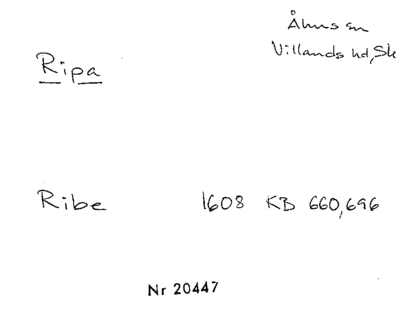 Åhus sn
Villands hd, Sk
Ripa
Ribe 1608 KB 660,696
Nr 20447